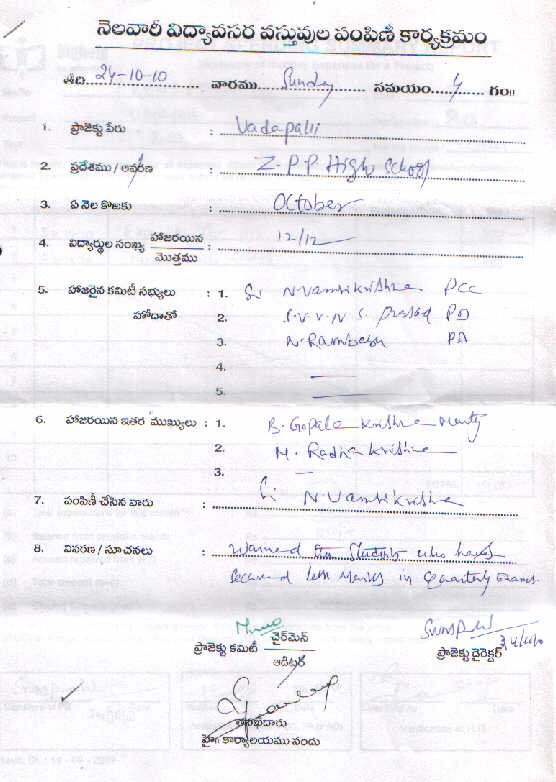 నెలవారీ విద్యావసర వస్తువుల పంపిణీ కార్యక్రమం
తేది. 24-10-10 వారము Sunday సమయం. 4 గం॥
1. ప్రాజెక్టు పేరు : Vadapalli
2. ప్రదేశము / ఆవరణ : Z.P.P High School
3. ఏ నెల కొఱకు : October
4. విద్యార్థుల సంఖ్య హాజరయిన / మొత్తము : 12/12
5. హాజరైన కమిటీ సభ్యులు : 1. Sri N. Vamsi Krishna PCC
హోదాతో 2. S.V.V.N.S. Prasad PD
3. N. Rambabu PA
4.
5.
6. హాజరయిన ఇతర ముఖ్యులు : 1. B. Gopala Krishna Murty
2. M. Radha Krishna
3.
7. పంపిణీ చేసిన వారు : Sri N. Vamsi Krishna
8. వివరణ / సూచనలు : Warned the Students who have
Secured less Marks in Quarterly Exams.
ప్రాజెక్టు కమిటీ చైర్‌మెన్ / ఆడిటర్
ప్రాజెక్టు డైరెక్టర్
తాణేదారు
హై॥ కార్యాలయము నందు